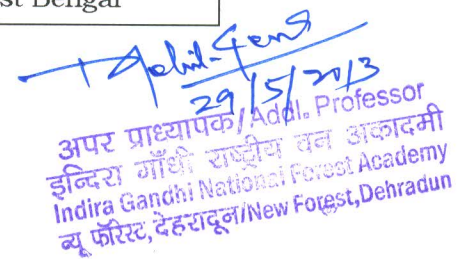 st Bengal
29/5/2013
अपर प्राध्यापक/Addl. Professor
इन्दिरा गाँधी राष्ट्रीय वन अकादमी
Indira Gandhi National Forest Academy
न्यू फॉरेस्ट, देहरादून/New Forest, Dehradun